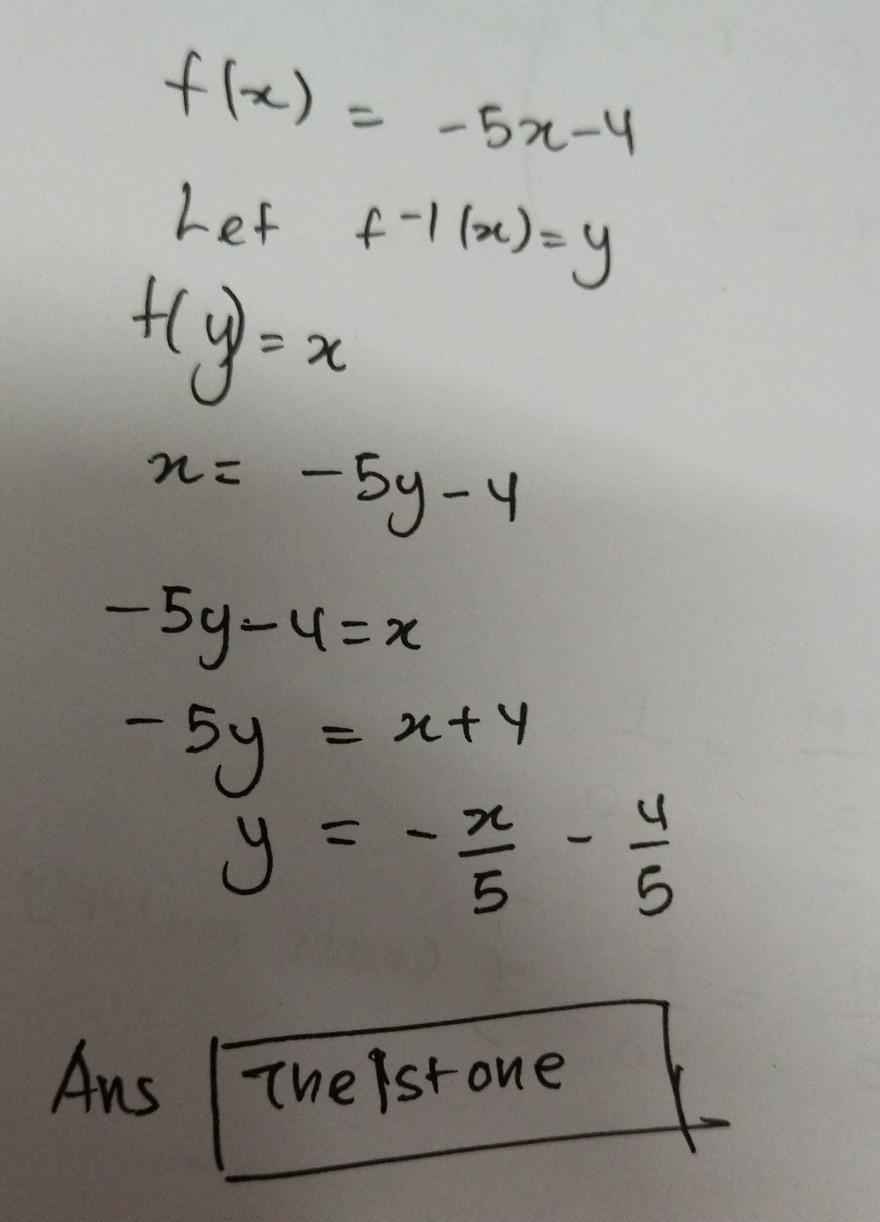 f(x) = -5x-4
Let f-1(x)=y
f(y)=x
x= -5y-4
-5y-4=x
-5y = x+4
y = - x/5 - 4/5
Ans The 1st one